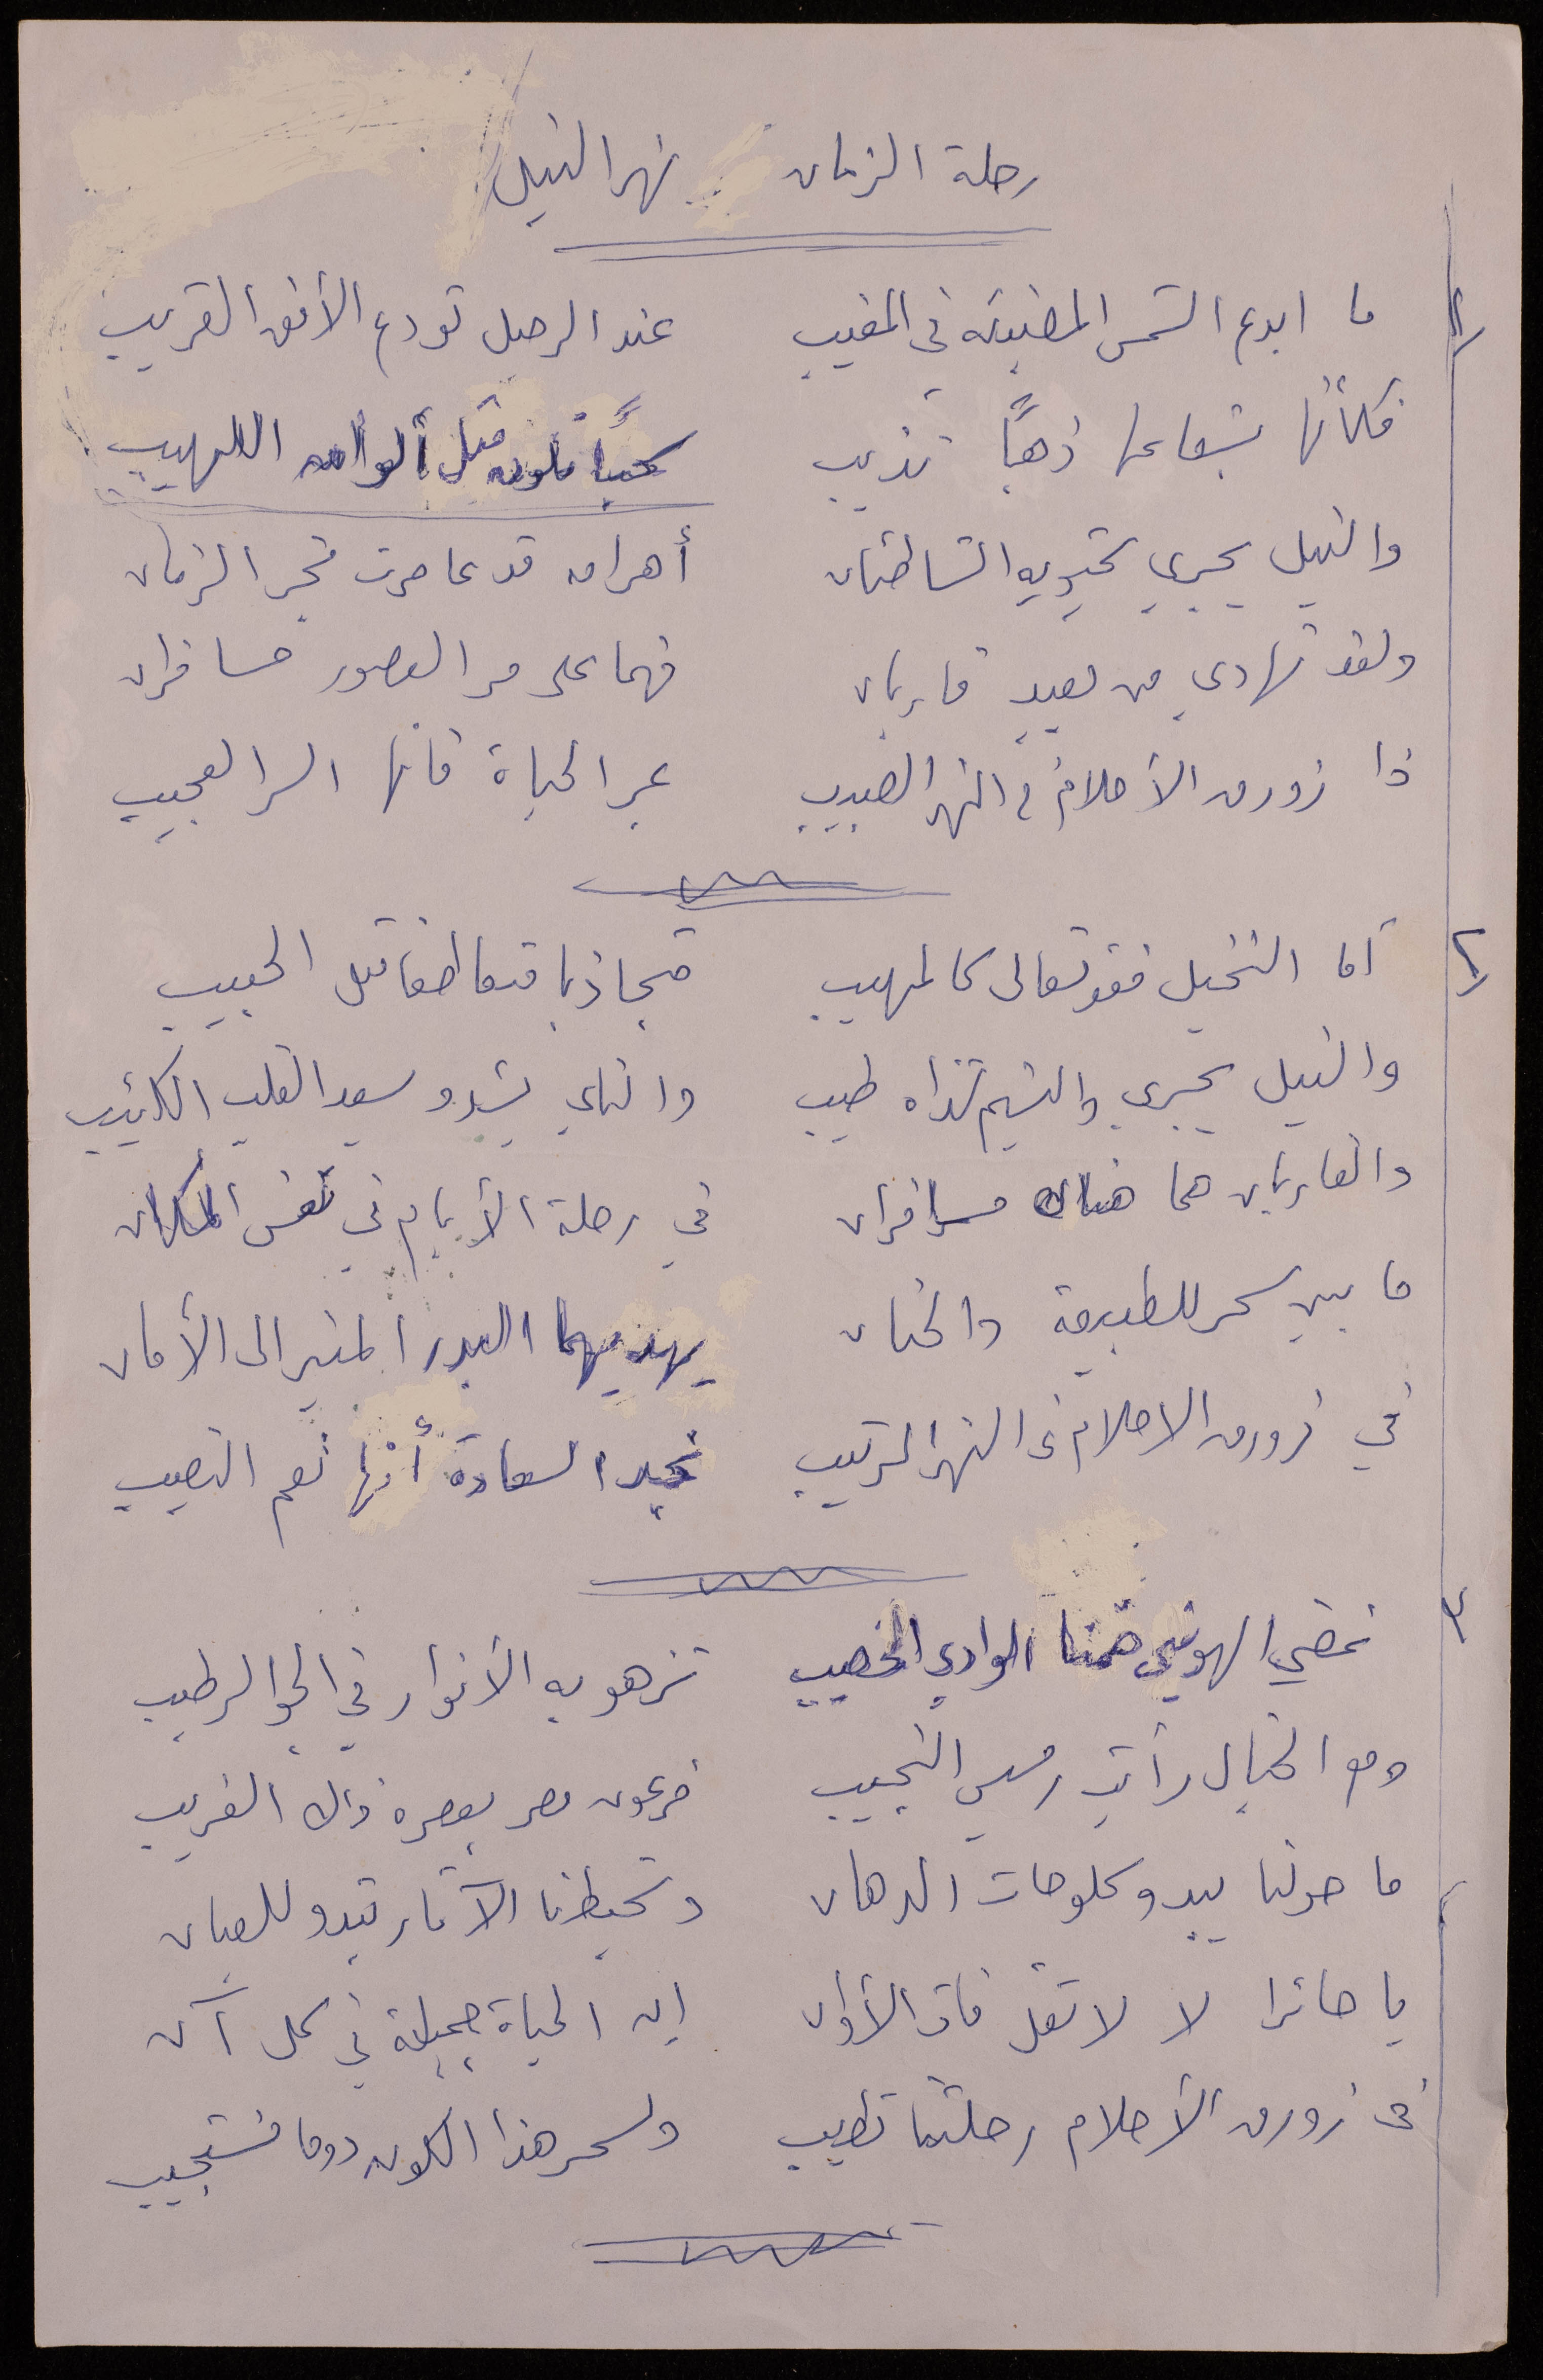 رحلة الزمان نهر النيل
١/ ما ابدع الشمس المضيئة في المغيب عند الرحيل تودع الأفق القريب
فكأنها بشعاعها ذهبًا تذيب سحبًا تلون مثل ألوان اللهيب
والنيل يجري يحتويه الشاطئان أهرامه قد عاصرت فجر الزمان
ولقد تهادى من بعيد قاربان فهما على مر العصور مسافران
ذا زورق الأحلام في النهر العبيب عبر الحياة فانها السر العجيب
٢/ أما النخيل فقد تعالى كالمهيب متجاذبا متعاطفا مثل الحبيب
والنيل يجري والنسيم شذاه طيب والناي يشدو يسعد القلب الكئيب
والقاربان هما هناك مسافران في رحلة الأيام في نفس المكان
ما بين سحر للطبيعة والحنان يهديهما البدر المنير الى الأمان
في زورق الاحلام في النهر الرتيب نجد السعادة أنها نعم النصيب
٣ نمضي الهوينى ضمنا الوادي الخصيب تزهو به الأنوار في الجو الرطيب
ومع الخيال رأيت رمسيس النجيب فرعون مصر بعصره ذاك الغريب
ما حولنا يبدو كلوحات الدهان وتحيطنا الآثار تبدو للعيان
يا حائرا لا لا تقل فات الأوان إن الحياة جميلة في كل آن
في زورق الأحلام رحلتنا تطيب ولسحر هذا الكون دوما نستجيب